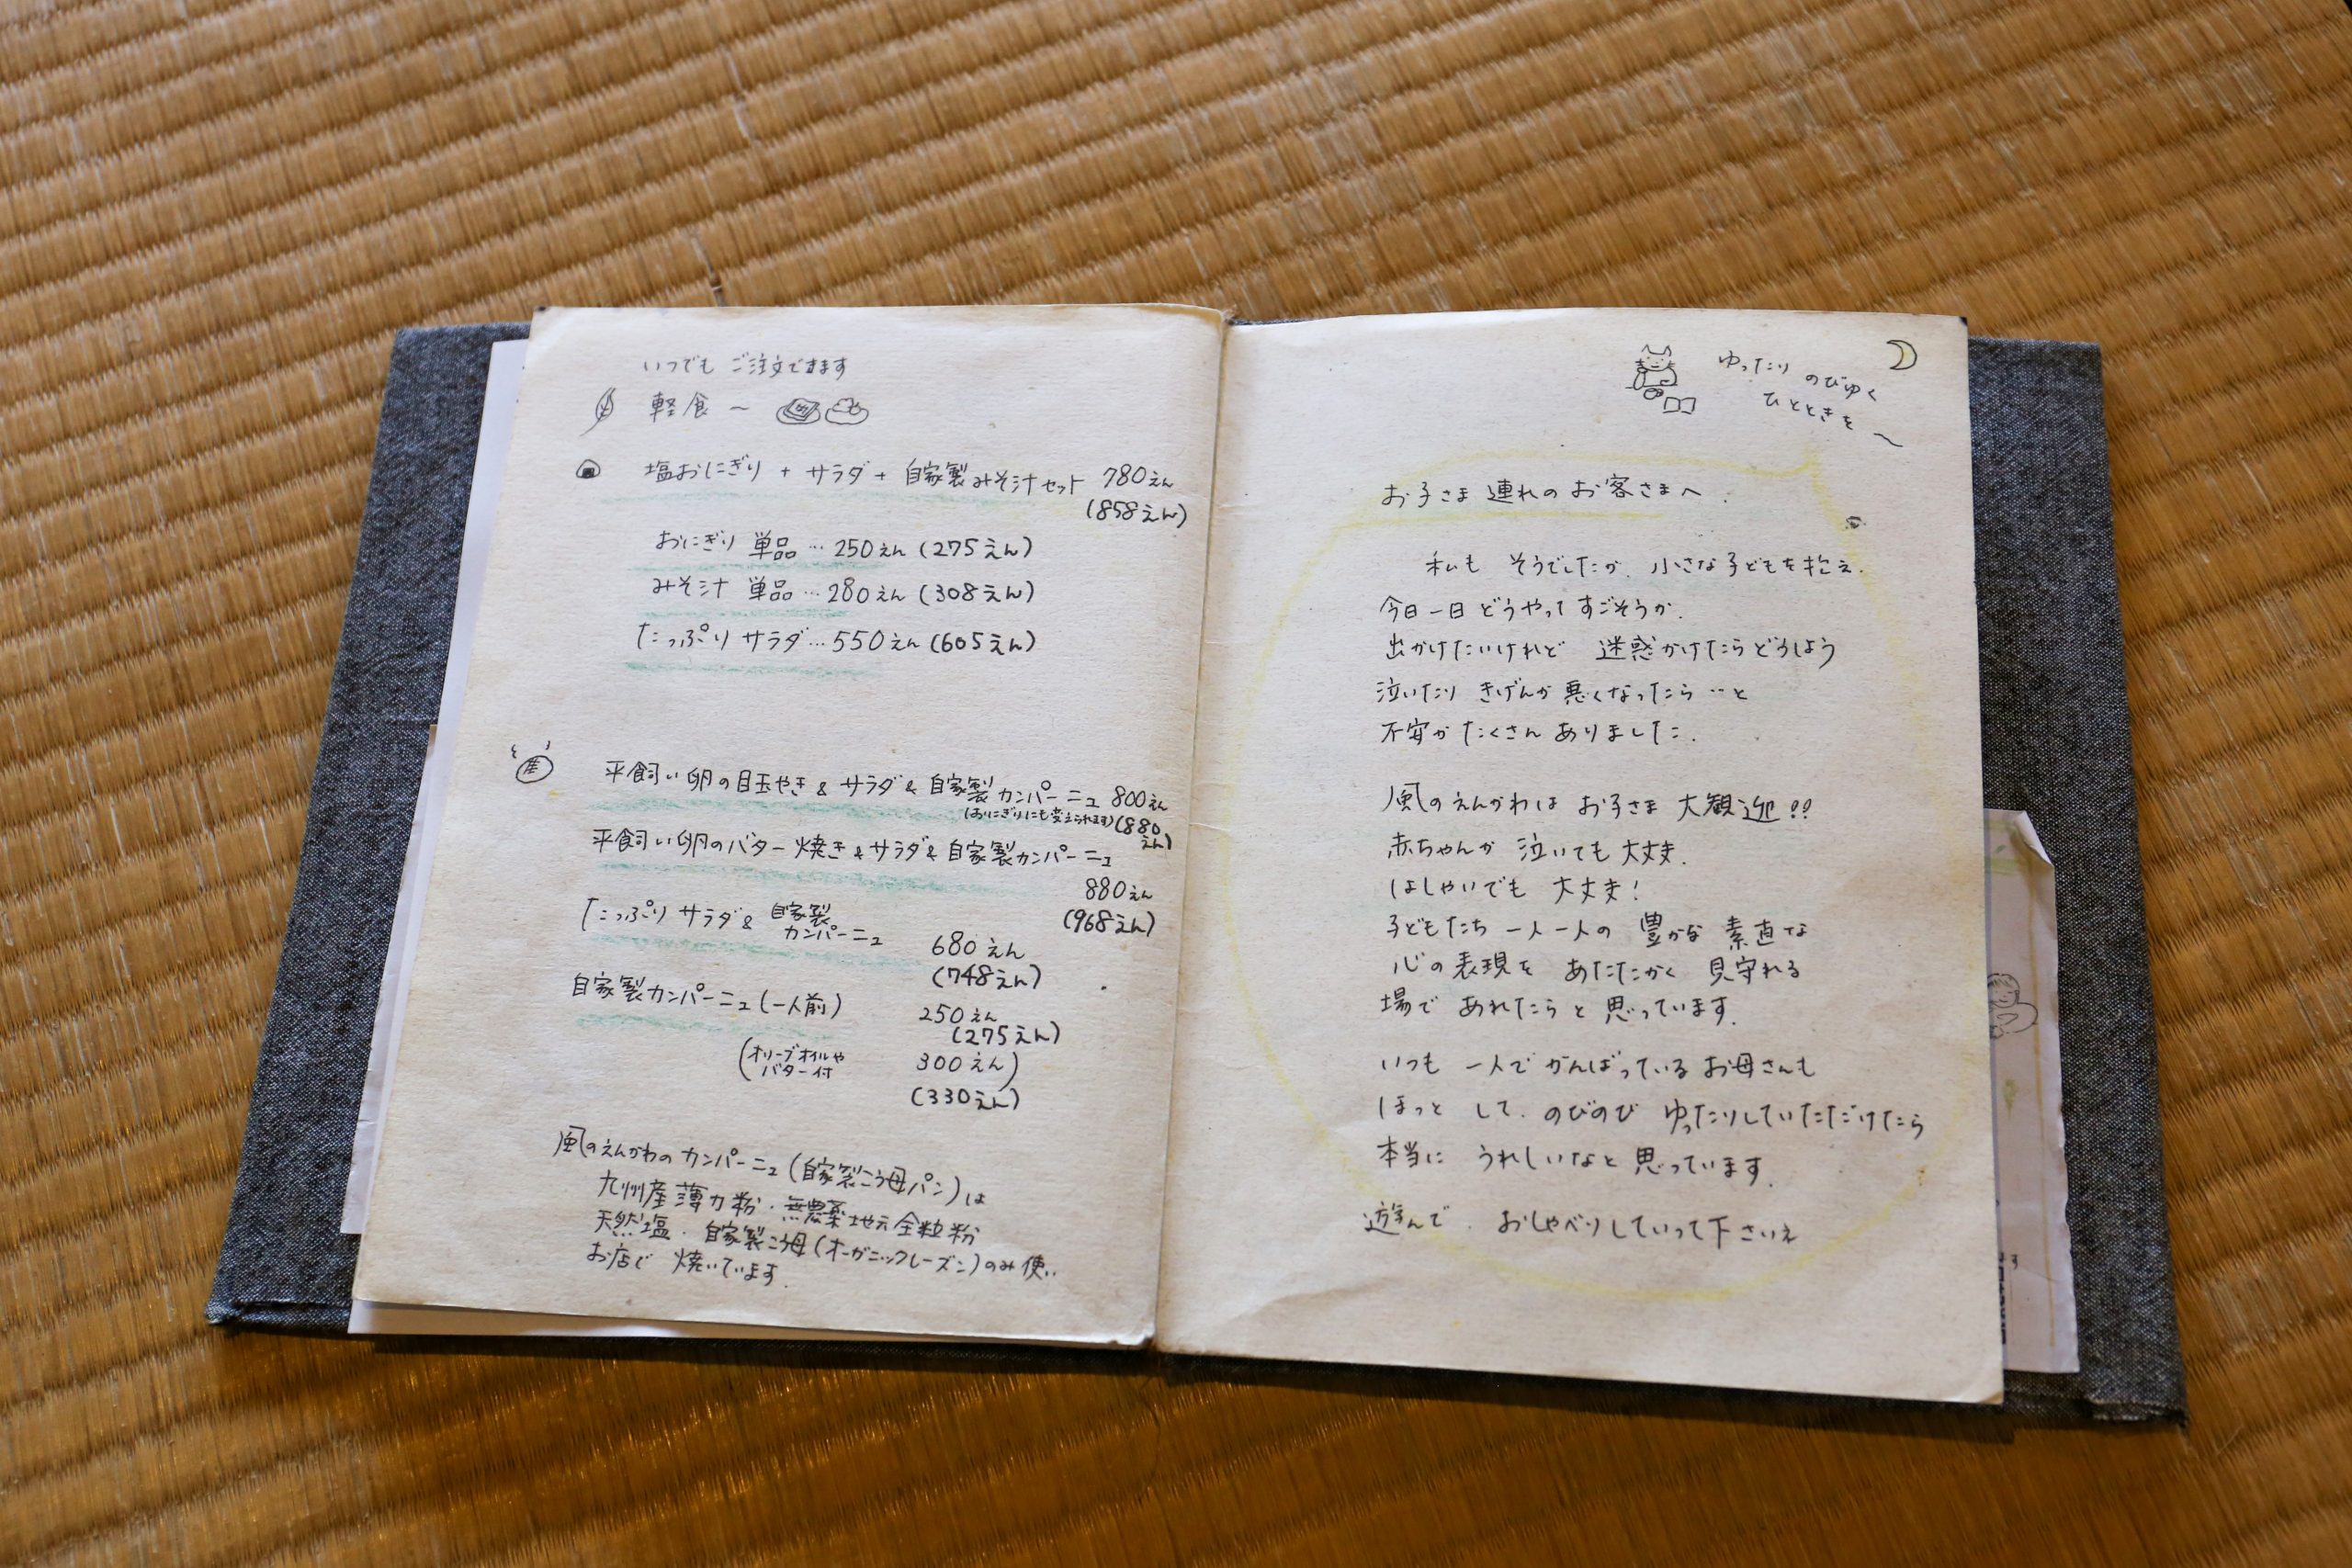 いつでも ご注文できます
軽食〜
塩おにぎり + サラダ + 自家製みそ汁セット 780えん
(858えん)
おにぎり 単品…250えん(275えん)
みそ汁 単品…280えん(308えん)
たっぷり サラダ…550えん(605えん)
平飼い卵の目玉やき & サラダ & 自家製カンパーニュ 800えん
(おにぎりにも変えられます)(880えん)
平飼い卵のバター焼き & サラダ & 自家製カンパーニュ
880えん
(968えん)
たっぷり サラダ & 自家製カンパーニュ
680えん
(748えん)
自家製カンパーニュ(一人前) 250えん
(275えん)
(オリーブオイルや
バター付 300えん)
(330えん)
風のえんがわの カンパーニュ(自家製こう母パン)は
九州産薄力粉・無農薬地元全粒粉
天然塩・自家製こう母(オーガニックレーズン)のみ使い
お店で 焼いています.
ゆったり のびゆく
ひとときを〜
お子さま 連れの お客さまへ.
私も そうでしたが、小さな子どもを抱え、
今日一日 どうやって すごそうか、
出かけたいけれど 迷惑かけたらどうしよう
泣いたり きげんが 悪くなったら…と
不安が たくさん ありました.
風のえんがわは お子さま 大観迎!!
赤ちゃんが 泣いても 大丈夫.
はしゃいでも 大丈夫!
子どもたち 一人一人の 豊かな 素直な
心の表現を あたたかく 見守れる
場で あれたらと 思っています.
いつも 一人で がんばっている お母さんも
ほっと して、のびのび ゆったりしていただけたら
本当に うれしいなと 思っています.
遊んで、おしゃべりしていって下さいね